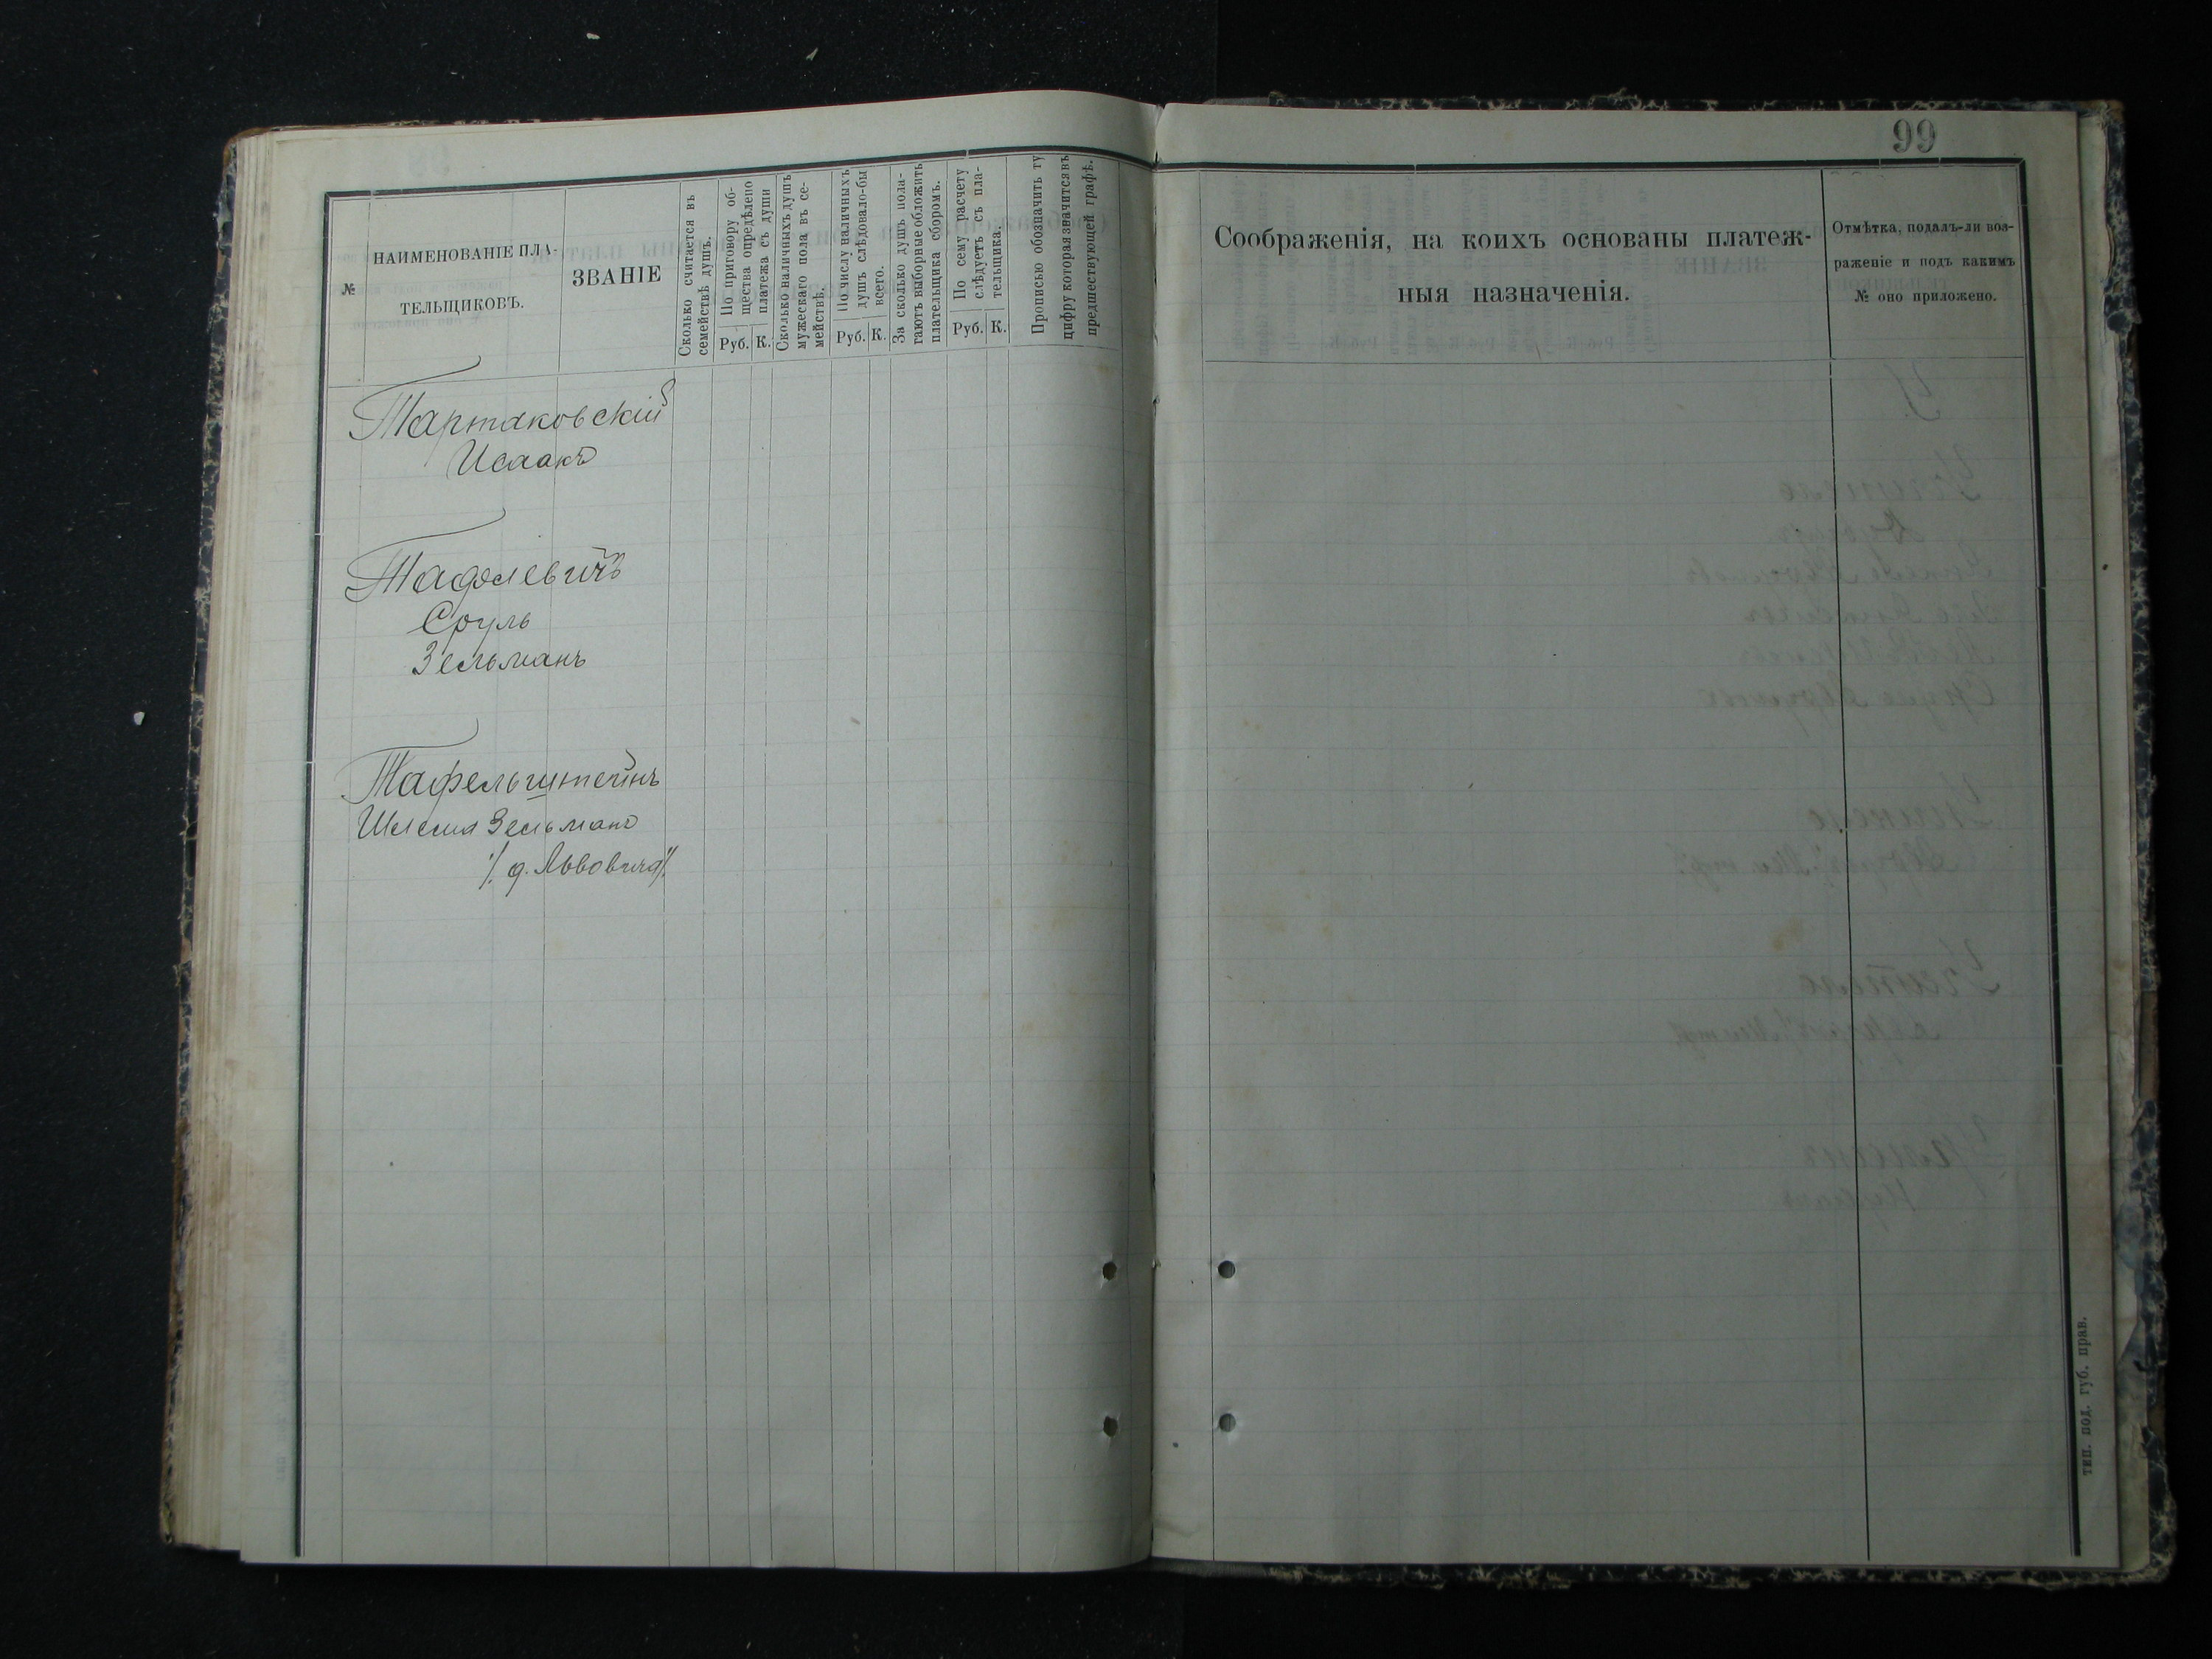 99
№
НАИМЕНОВАНІЕ ПЛА-
ТЕЛЬЩИКОВЪ.
ЗВАНІЕ
Сколько считается въ
семействѣ душъ.
По приговору об-
щества опредѣлено
платежа съ души
Руб.
К.
Сколько наличныхъ душъ
мужескаго пола въ се-
мействѣ.
По числу наличныхъ
душъ слѣдовало-бы
всего.
Руб.
К.
За сколько душъ пола-
гаютъ выборные обложить
плательщика сборомъ.
По сему расчету
слѣдуетъ съ пла-
тельщика.
Руб.
К.
Прописью обозначить ту
цифру которая значится въ
предшествующей графѣ.
Тартаковскій
Исаакъ
Тафелевичъ
Сруль
Зельманъ
Тафельштейнъ
Шлема Зельманъ
/. д. Львовича /.
Соображенія, на коихъ основаны платеж-
ныя назначенія.
Отмѣтка, подалъ-ли воз-
раженіе и подъ какимъ
№ оно приложено.
тип. под. губ. прав.